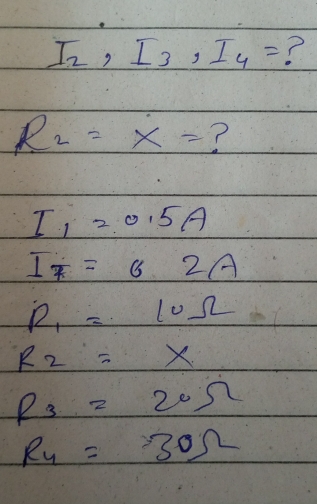 I₂, I₃, I₄ = ?
R₂ = X = ?
I₁ = 0.5A
I_T = 2A
R₁ = 10Ω
R₂ = X
R₃ = 20Ω
R₄ = 30Ω